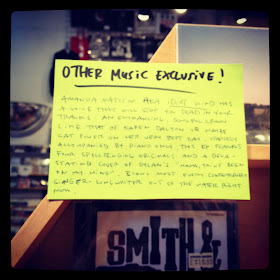 OTHER MUSIC EXCLUSIVE!
AMANDA NATION AKA IDIOT WIND HAS
A VOICE THAT WILL STOP YOU DEAD IN YOUR
TRACKS. AN ENTRANCING, SOULFUL CROON
LIKE THAT OF KAREN DALTON OR MAYBE
CAT POWER ON HER VERY BEST DAY. STARKLY
ACCOMPANIED BY PIANO ONLY, THIS EP FEATURES
FOUR SPELLBINDING ORIGINALS AND A DEVA-
STATING COVER OF DYLAN'S "MAMA, YOU'VE BEEN
ON MY MIND". BLOWS MOST EVERY CONTEMPORARY
SINGER-SONGWRITER OUT OF THE WATER RIGHT
NOW.
SMITH &